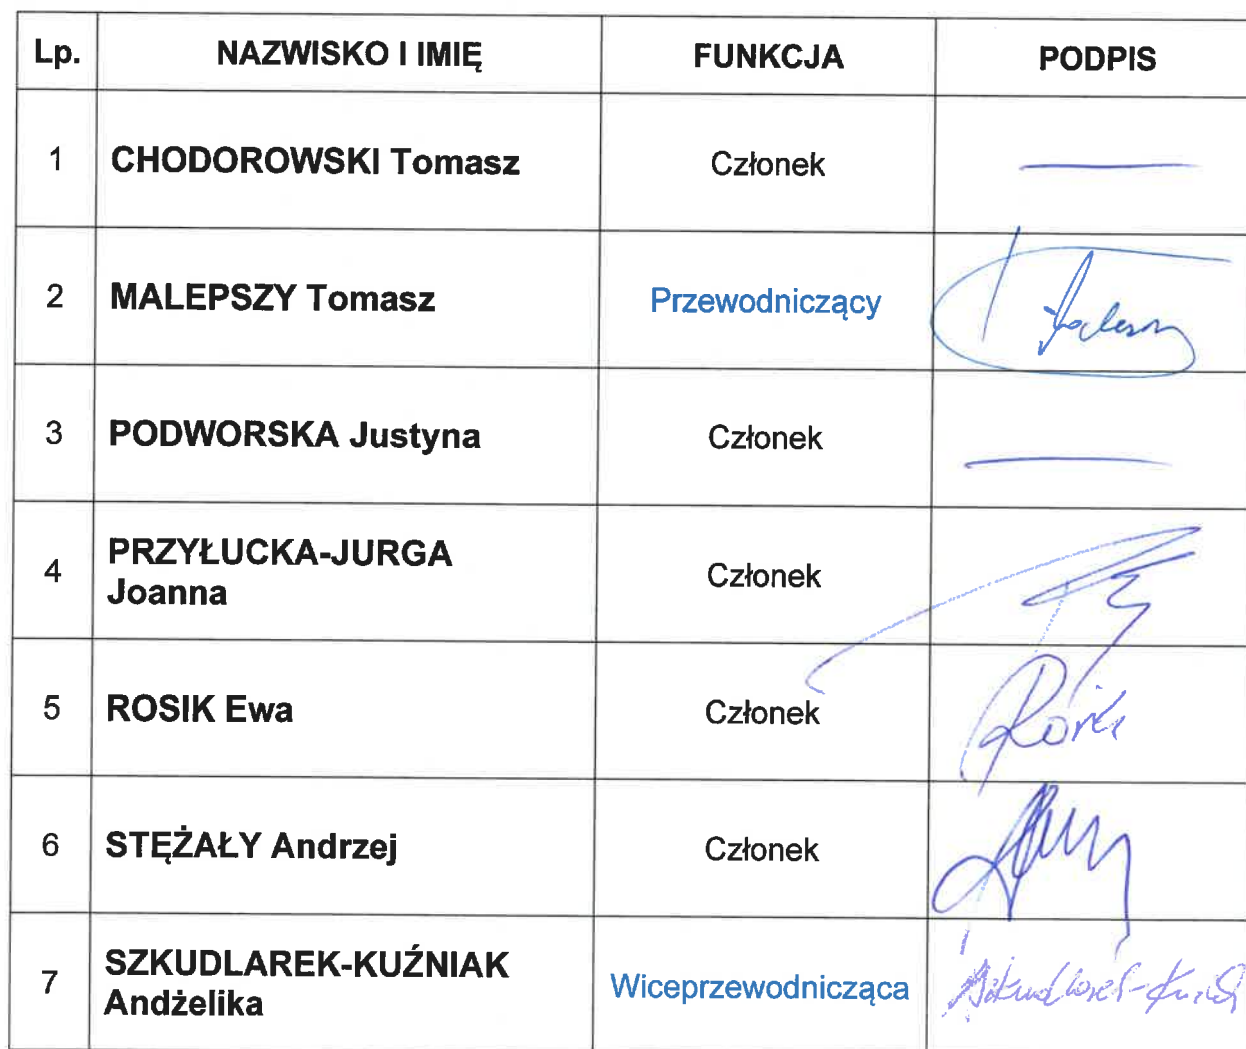 Lp. NAZWISKO I IMIĘ FUNKCJA PODPIS
1 CHODOROWSKI Tomasz Członek
2 MALEPSZY Tomasz Przewodniczący
3 PODWORSKA Justyna Członek
4 PRZYŁUCKA-JURGA
Joanna Członek
5 ROSIK Ewa Członek
6 STĘŻAŁY Andrzej Członek
7 SZKUDLAREK-KUŹNIAK
Andżelika Wiceprzewodnicząca